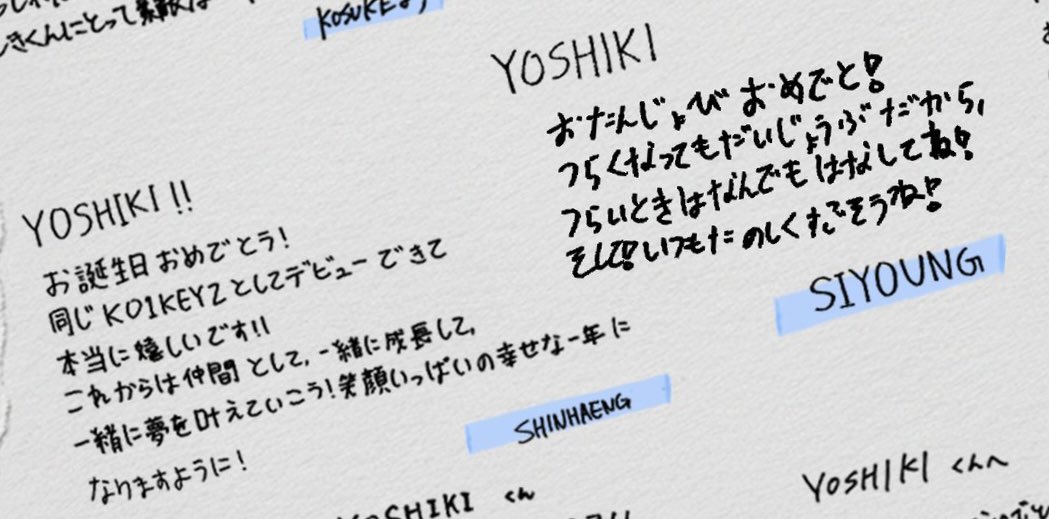 くんにとって
KOSUKEより
YOSHIKI
おたんじょびおめでと!
つらくなってもだいじょうぶだから,
つらいときはなんでもはなしてね!
そして!いつもたのしくすごそうね!
SIYOUNG
YOSHIKI!!
お誕生日おめでとう!
同じKO1KEYZとしてデビューできて
本当に嬉しいです!!
これからは仲間として,一緒に成長して,
一緒に夢を叶えていこう!笑顔いっぱいの幸せな一年に
なりますように!
SHINHAENG
YOSHIKI くん
YOSHIKI くんへ